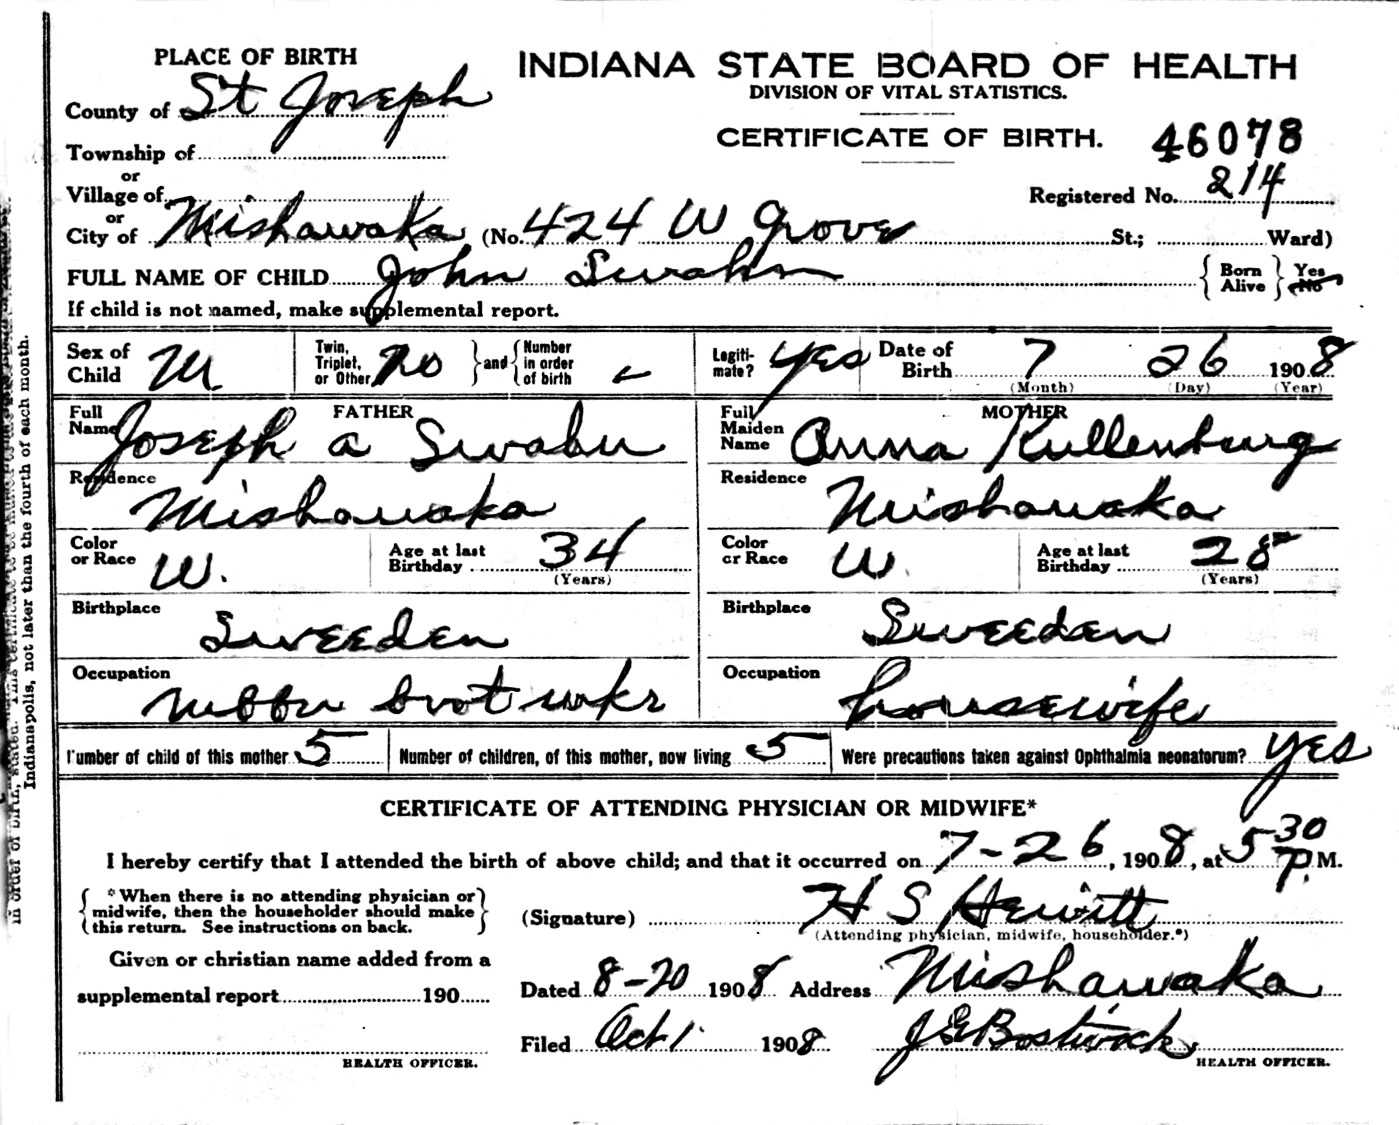 PLACE OF BIRTH
INDIANA STATE BOARD OF HEALTH
DIVISION OF VITAL STATISTICS.
County of St Joseph
CERTIFICATE OF BIRTH. 46078
Township of
or
Village of
Registered No. 214
or
City of Mishawaka (No. 424 W Grove St.; Ward)
FULL NAME OF CHILD John Swahn { Born Alive } Yes No
If child is not named, make supplemental report.
Sex of Child M Twin, Triplet, or Other no } and { Number in order of birth - Legiti-mate? yes Date of Birth 7 26 1908
(Month) (Day) (Year)
FATHER
Full Name Joseph a Swahn
MOTHER
Full Maiden Name Anna Kullenburg
Residence Mishawaka
Residence Mishawaka
Color or Race W. Age at last Birthday 34 (Years)
Color or Race W Age at last Birthday 28 (Years)
Birthplace Sweeden
Birthplace Sweeden
Occupation rubber boot wkr
Occupation housewife
Number of child of this mother 5 Number of children, of this mother, now living 5 Were precautions taken against Ophthalmia neonatorum? yes
CERTIFICATE OF ATTENDING PHYSICIAN OR MIDWIFE*
I hereby certify that I attended the birth of above child; and that it occurred on 7-26, 1908, at 5 30 P. M.
{ *When there is no attending physician or midwife, then the householder should make this return. See instructions on back. }
(Signature) H S Hewitt
(Attending physician, midwife, householder.*)
Given or christian name added from a
supplemental report 190
Dated 8-20 1908 Address Mishawaka
Filed Oct 1 1908 J E Bostwick
HEALTH OFFICER.
HEALTH OFFICER.
in order of birth, stated. This certificate to be
Indianapolis, not later than the fourth of each month.